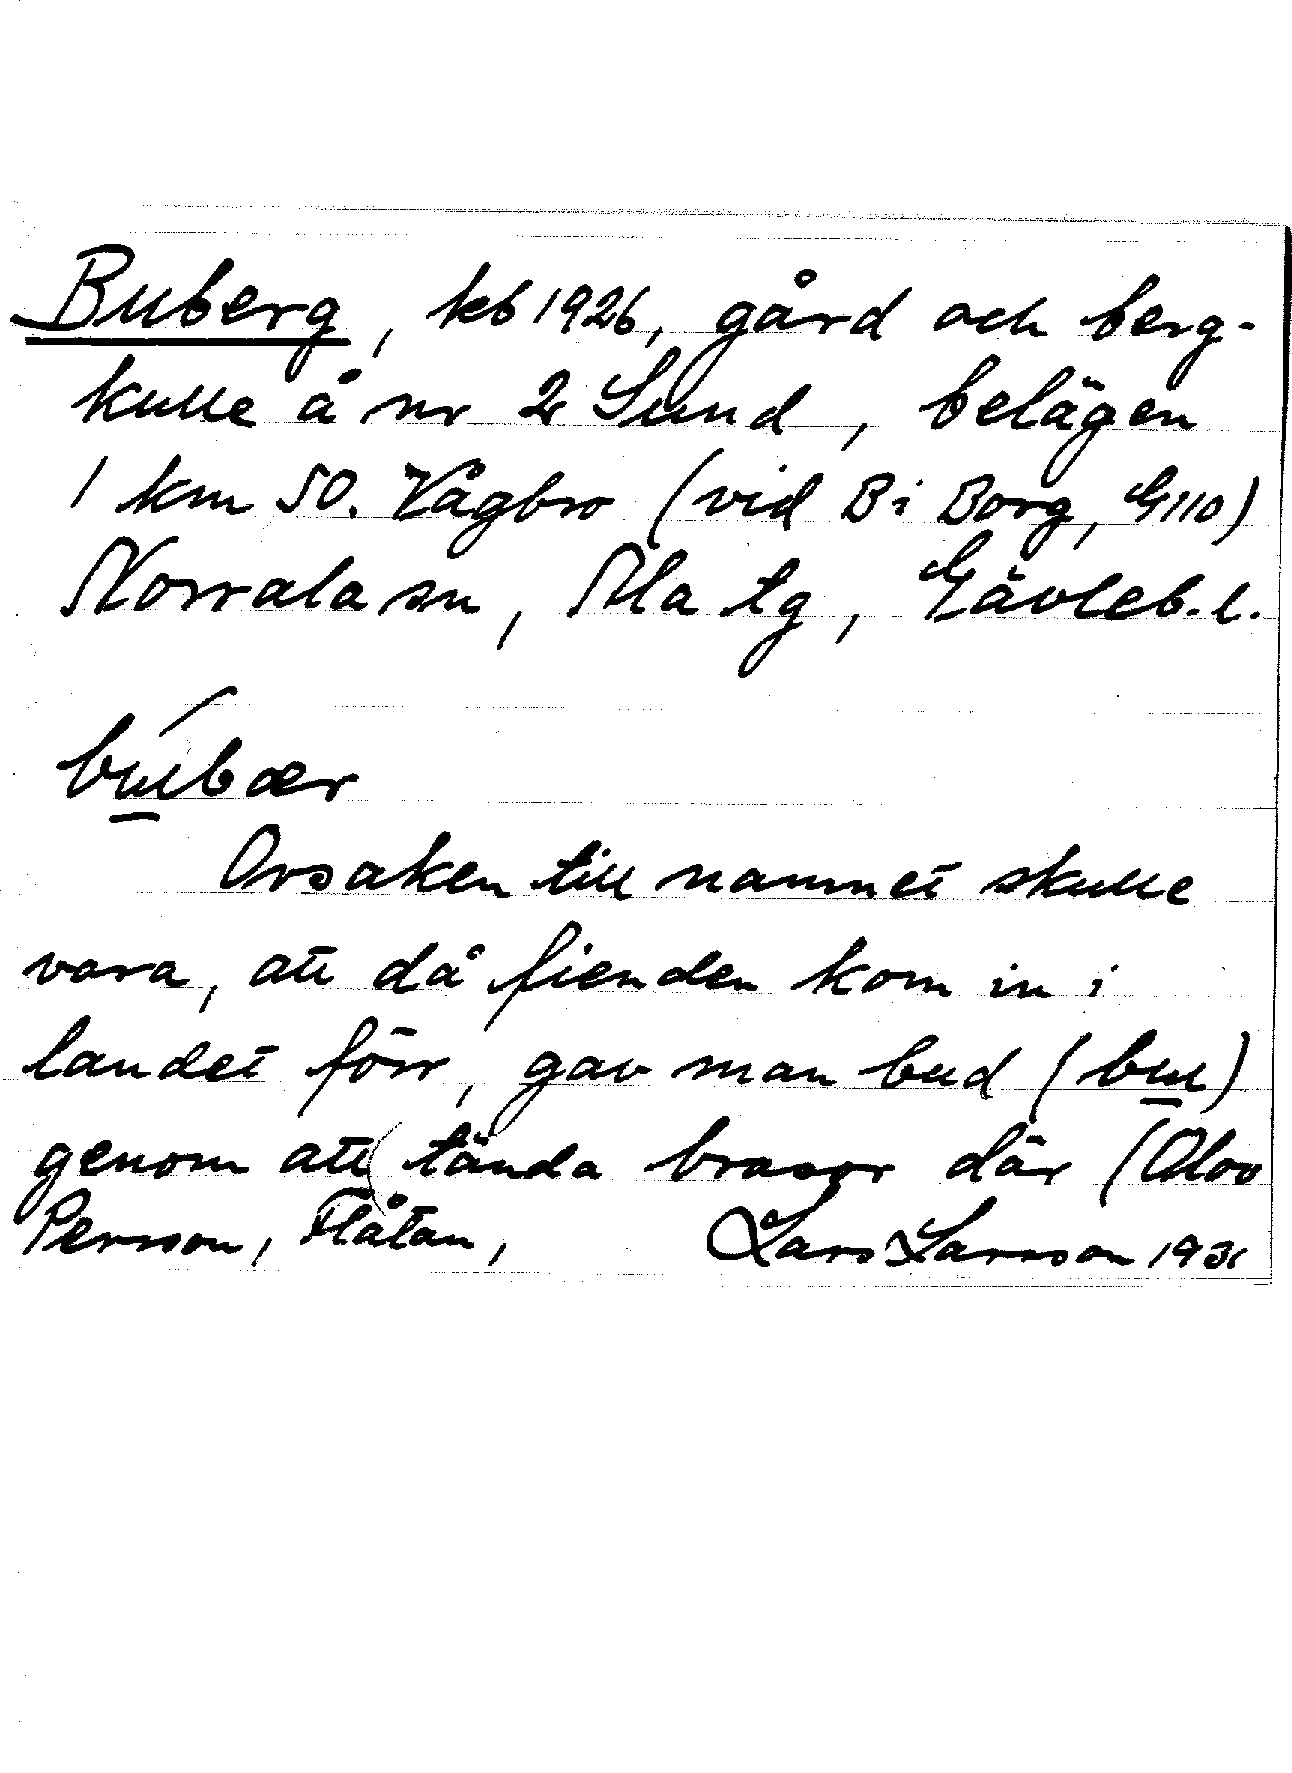 Buberg, kb 1926, gård och berg-
kulle å nr 2 Sund, belägen
1 km SO. Vågbro (vid B i Borg, G110)
Norrala sn, Ala tg, Gävleb. l.
bu̲bær
Orsaken till namnet skulle
vara, att då fienden kom in i
landet förr, gav man bud (bu̲)
genom att tända brasor där (Olov
Persson, Flåtan, Lars Larsson 1931